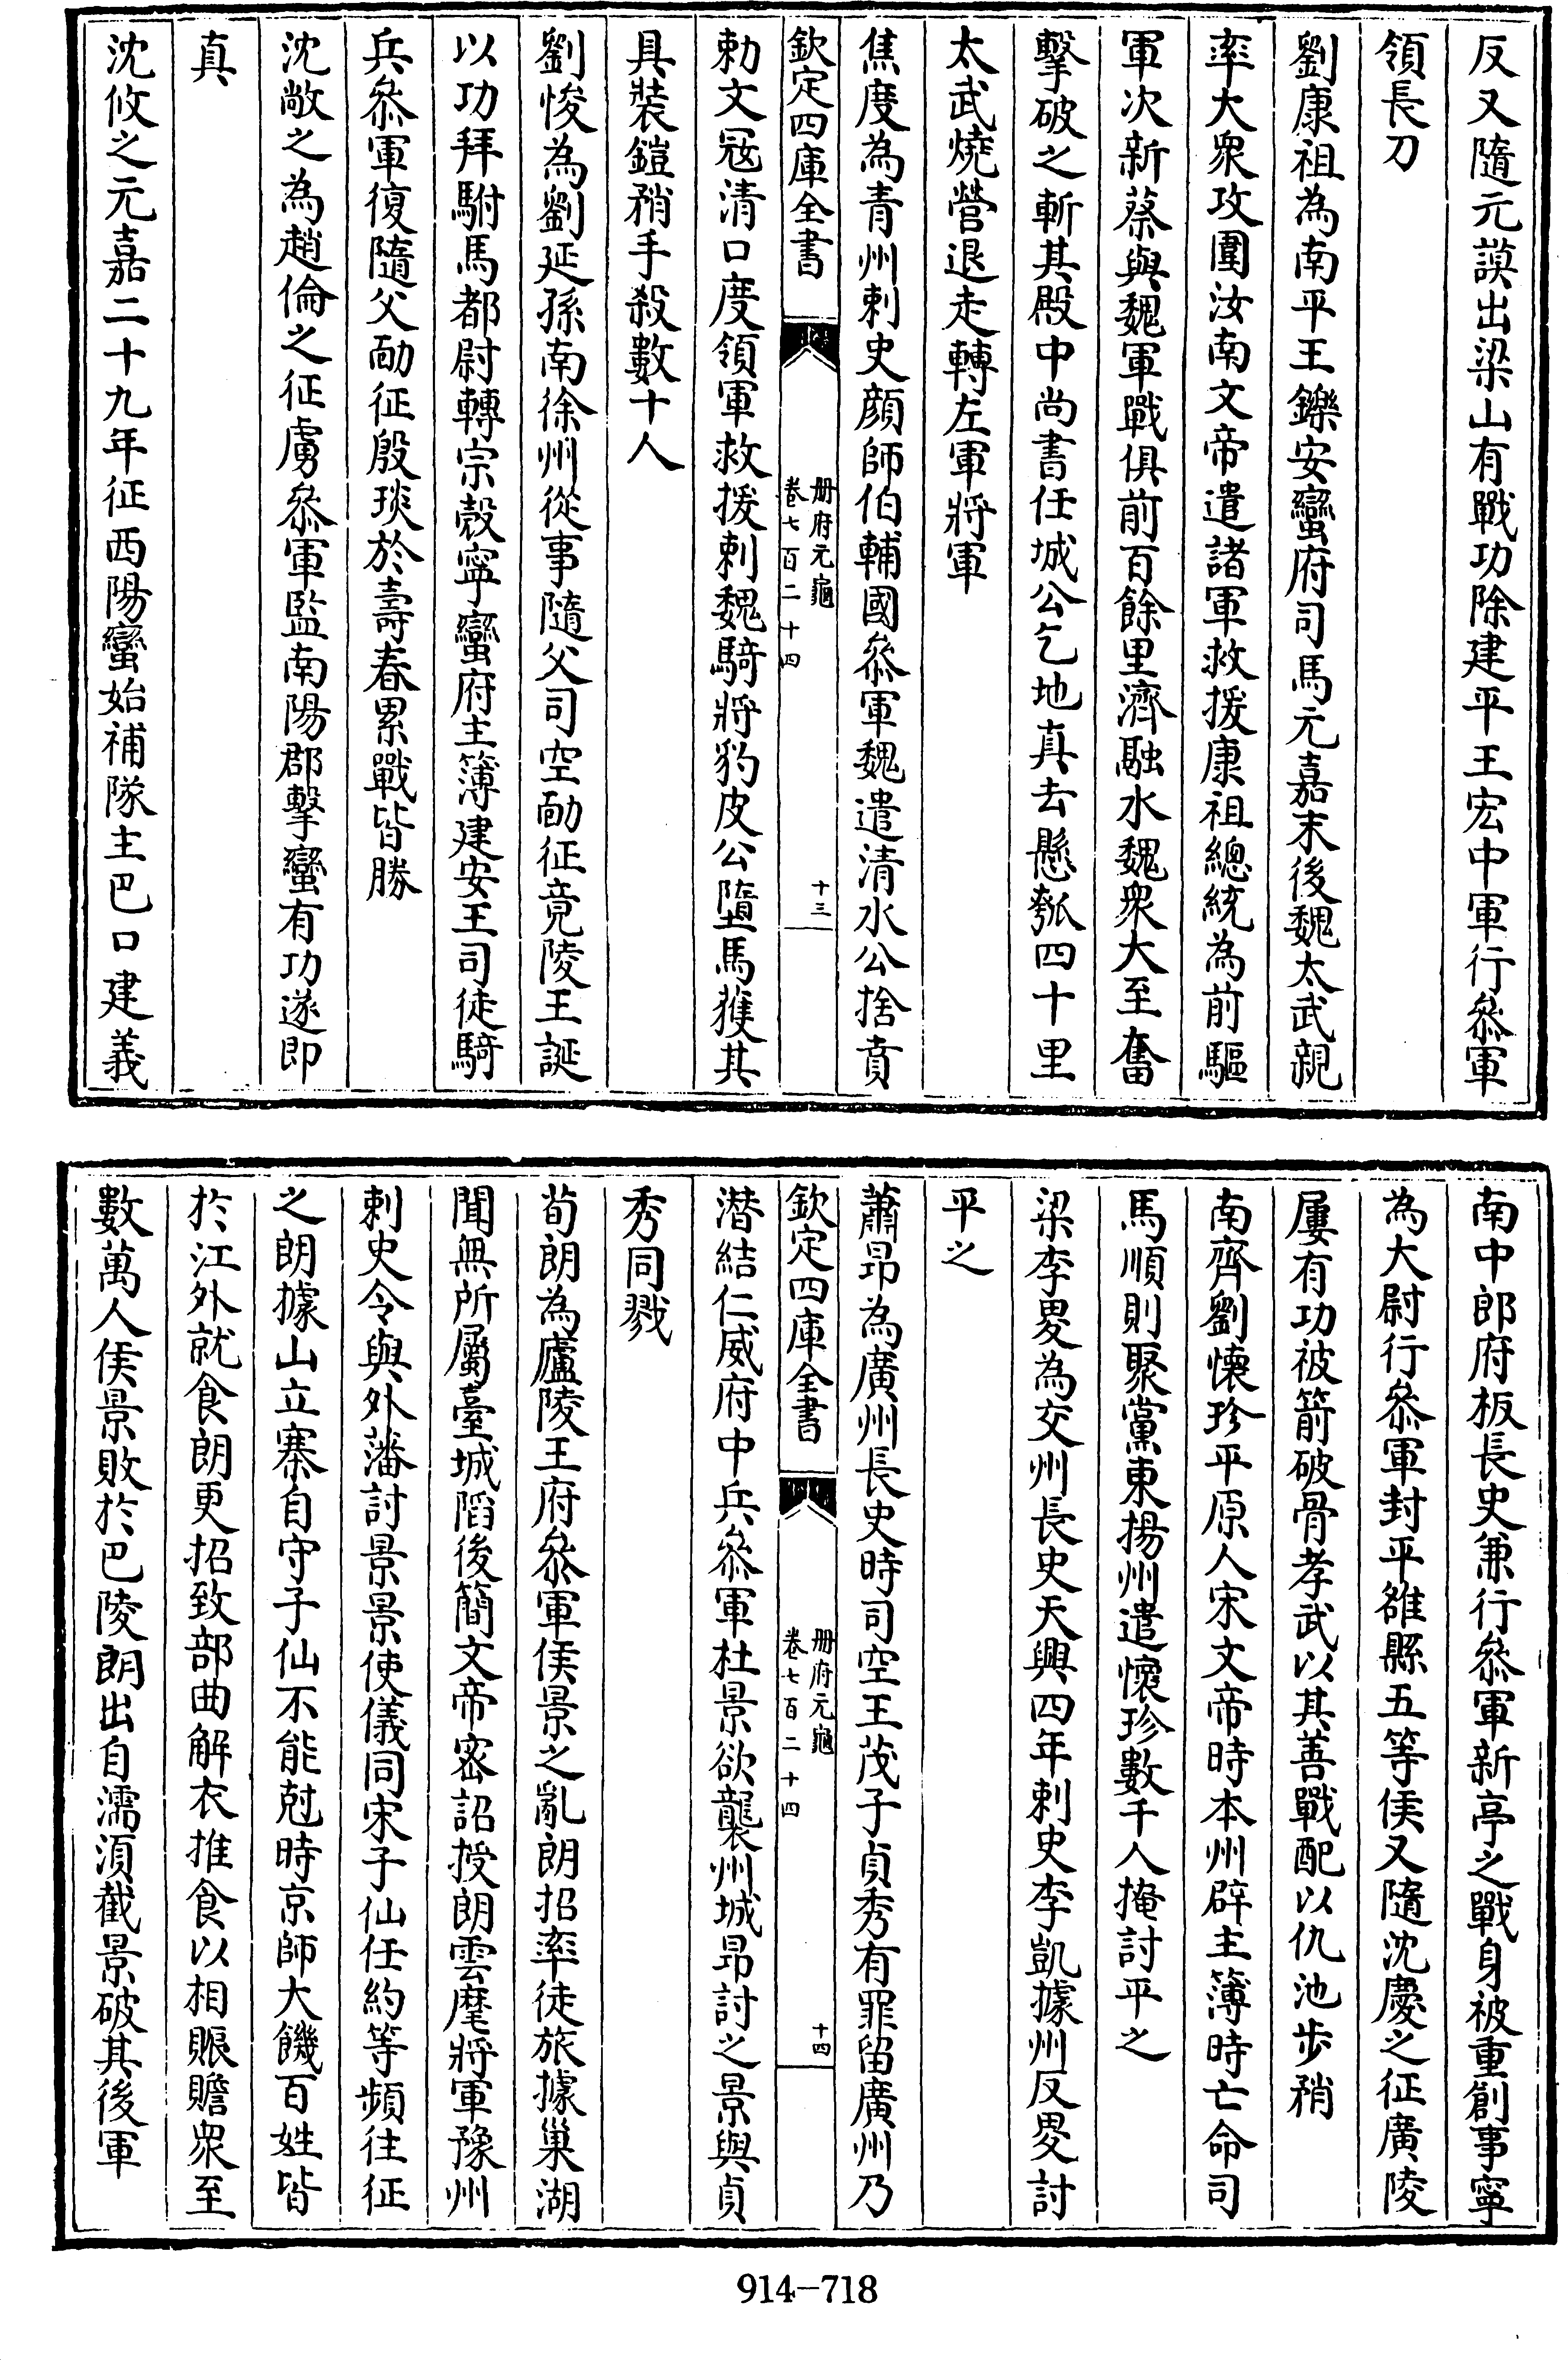 反又隨元謨出梁山有戰功除建平王宏中軍行叅軍
領長刀
劉康祖為南平王鑠安蠻府司馬元嘉末後魏太武親
率大衆攻圍汝南文帝遣諸軍救援康祖總統為前驅
軍次新蔡與魏軍戰俱前百餘里濟融水魏衆大至奮
擊破之斬其殿中尚書任城公乞地真去懸瓠四十里
太武燒營退走轉左軍將軍
焦度為青州刺史顔師伯輔國叅軍魏遣清水公捨賁
欽定四庫全書
册府元龜
卷七百二十四
十三
勅文冦清口度領軍救援刺魏騎將豹皮公墮馬獲其
具裝鎧矟手殺數十人
劉悛為劉延孫南徐州從事隨父司空勔征竟陵王誕
以功拜駙馬都尉轉宗慤寧蠻府主簿建安王司徒騎
兵叅軍復隨父勔征殷琰於壽春累戰皆勝
沈敞之為趙倫之征虜叅軍監南陽郡擊蠻有功遂即
真
沈攸之元嘉二十九年征西陽蠻始補隊主巴口建義
南中郎府板長史兼行叅軍新亭之戰身被重創事寧
為大尉行叅軍封平雒縣五等侯又隨沈慶之征廣陵
屢有功被箭破骨孝武以其善戰配以仇池步矟
南齊劉懷珍平原人宋文帝時本州辟主簿時亡命司
馬順則聚黨東揚州遣懷珍數千人掩討平之
梁李畟為交州長史天興四年刺史李凱據州反畟討
平之
蕭昂為廣州長史時司空王茂子貞秀有罪留廣州乃
欽定四庫全書
册府元龜
卷七百二十四
十四
潛結仁威府中兵叅軍杜景欲襲州城昂討之景與貞
秀同戮
荀朗為廬陵王府叅軍侯景之亂朗招率徒旅據巢湖
聞無所屬臺城䧟後簡文帝密詔授朗雲麾將軍豫州
刺史令與外藩討景景使儀同宋子仙任約等頻往征
之朗據山立寨自守子仙不能尅時京師大饑百姓皆
於江外就食朗更招致部曲解衣推食以相賑贍衆至
數萬人侯景敗於巴陵朗出自濡湏截景破其後軍
914-718